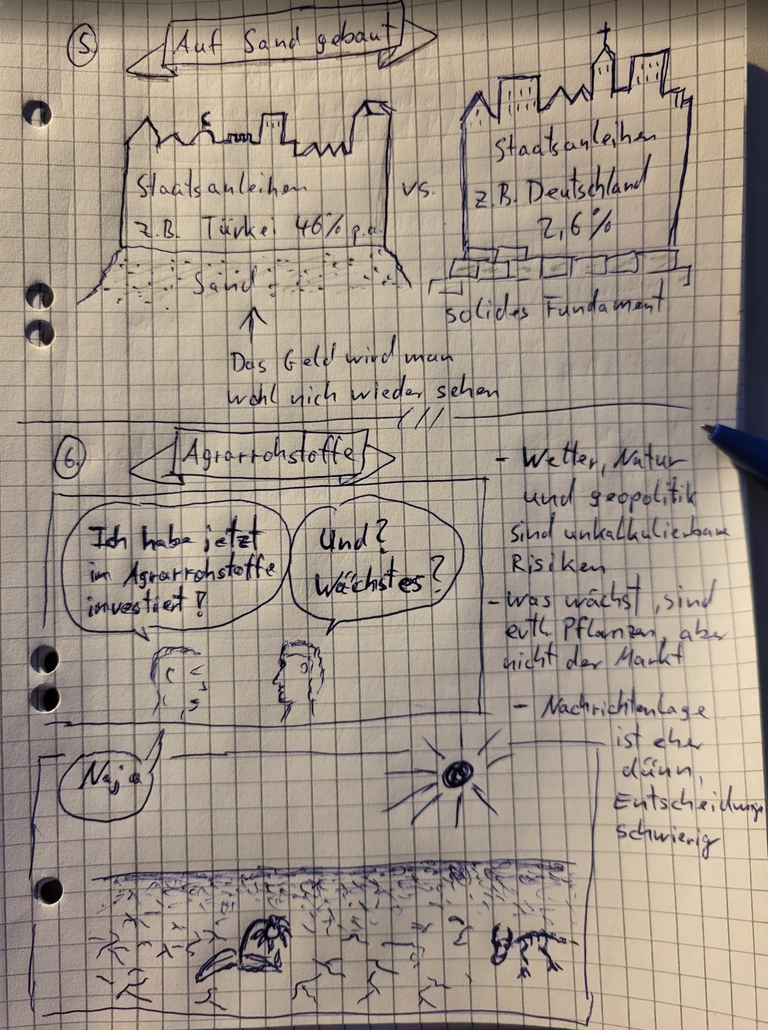 5.
Auf Sand gebaut
Staatsanleihen
z.B. Türkei 46% p.a.
Sand
Das Geld wird man
wohl nich wieder sehen
vs.
Staatsanleihen
z.B. Deutschland
2,6%
solides Fundament
6.
Agrarrohstoffe
Ich habe jetzt
in Agrarrohstoffe
investiert?
Und?
Wächstes?
Naja
- Wetter, Natur
und geopolitik
sind unkalkulierbare
Risiken
- was wächst, sind
evtl. Pflanzen, aber
nicht der Markt
- Nachrichtenlage
ist eher
dünn,
Entscheidung
schwierig